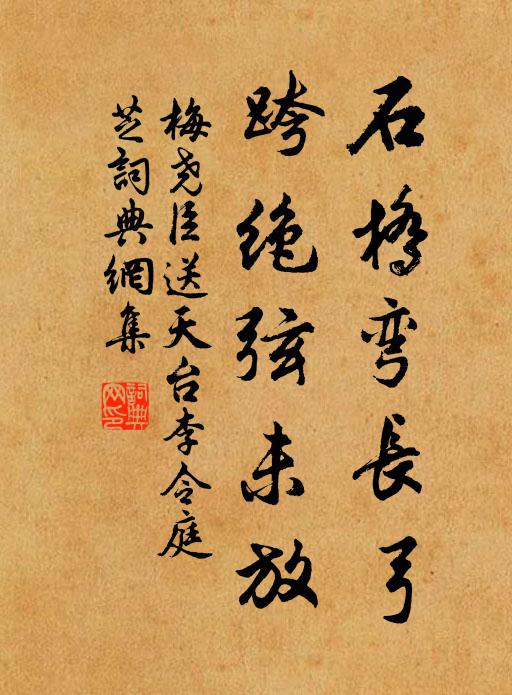 石橋弯長弓
跨绝弦未放
梅尧臣送天台李令庭
芝詞典網集
詞典
网印